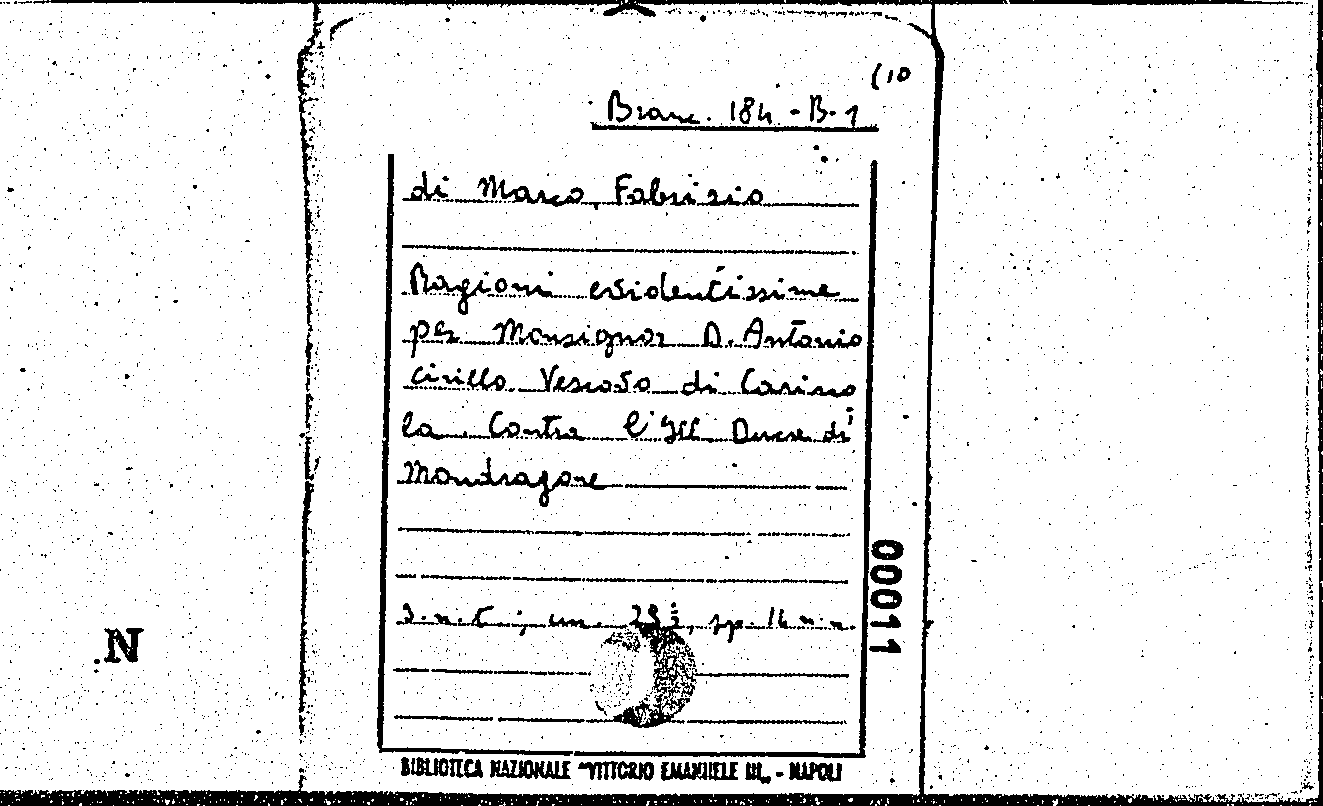 (10
Branc. 184 - B-1
di Marco, Fabrizio
Ragioni evidentissime
per Monsignor D. Antonio
Cirillo Vescovo di Carino
la. Contra l'Ill. Duca di
Mondragone
S.n.t.; cm. pp. 14 n.n.
00011
N
BIBLIOTECA NAZIONALE "VITTORIO EMANUELE III„ - NAPOLI